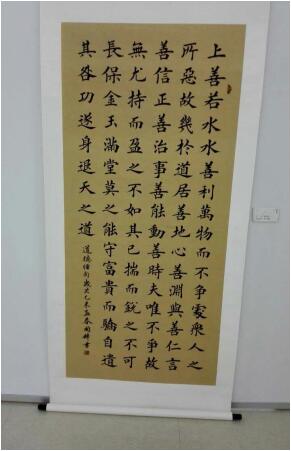 上善若水水善利萬物而不爭處衆人之
所惡故幾於道居善地心善淵與善仁言
善信正善治事善能動善時夫唯不爭故
無尤持而盈之不如其已揣而銳之不可
長保金玉滿堂莫之能守富貴而驕自遺
其咎功遂身退天之道
道德經句歲次乙未孟春書